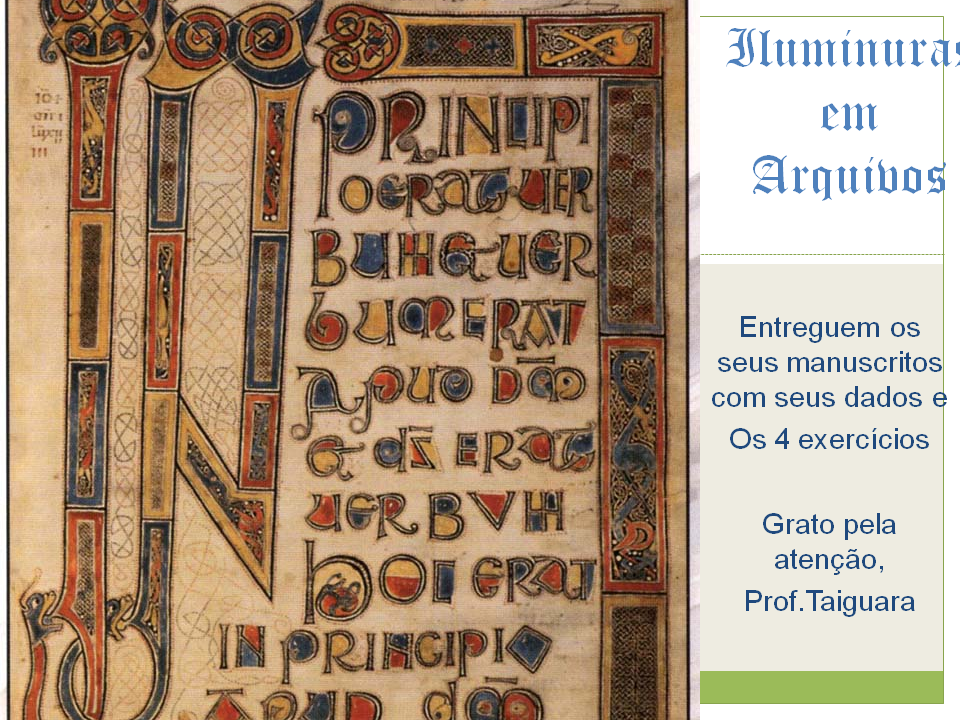 IN
PRINCIPI
O ERAT UER
BUM ET UER
BUM ERAT
APUD DM̅
ET DS̅ ERAT
UER BUM
HOC ERAT
IN PRINCIPIO
APUD DM̅
Iluminuras
em
Arquivos
Entreguem os
seus manuscritos
com seus dados e
Os 4 exercícios
Grato pela
atenção,
Prof.Taiguara